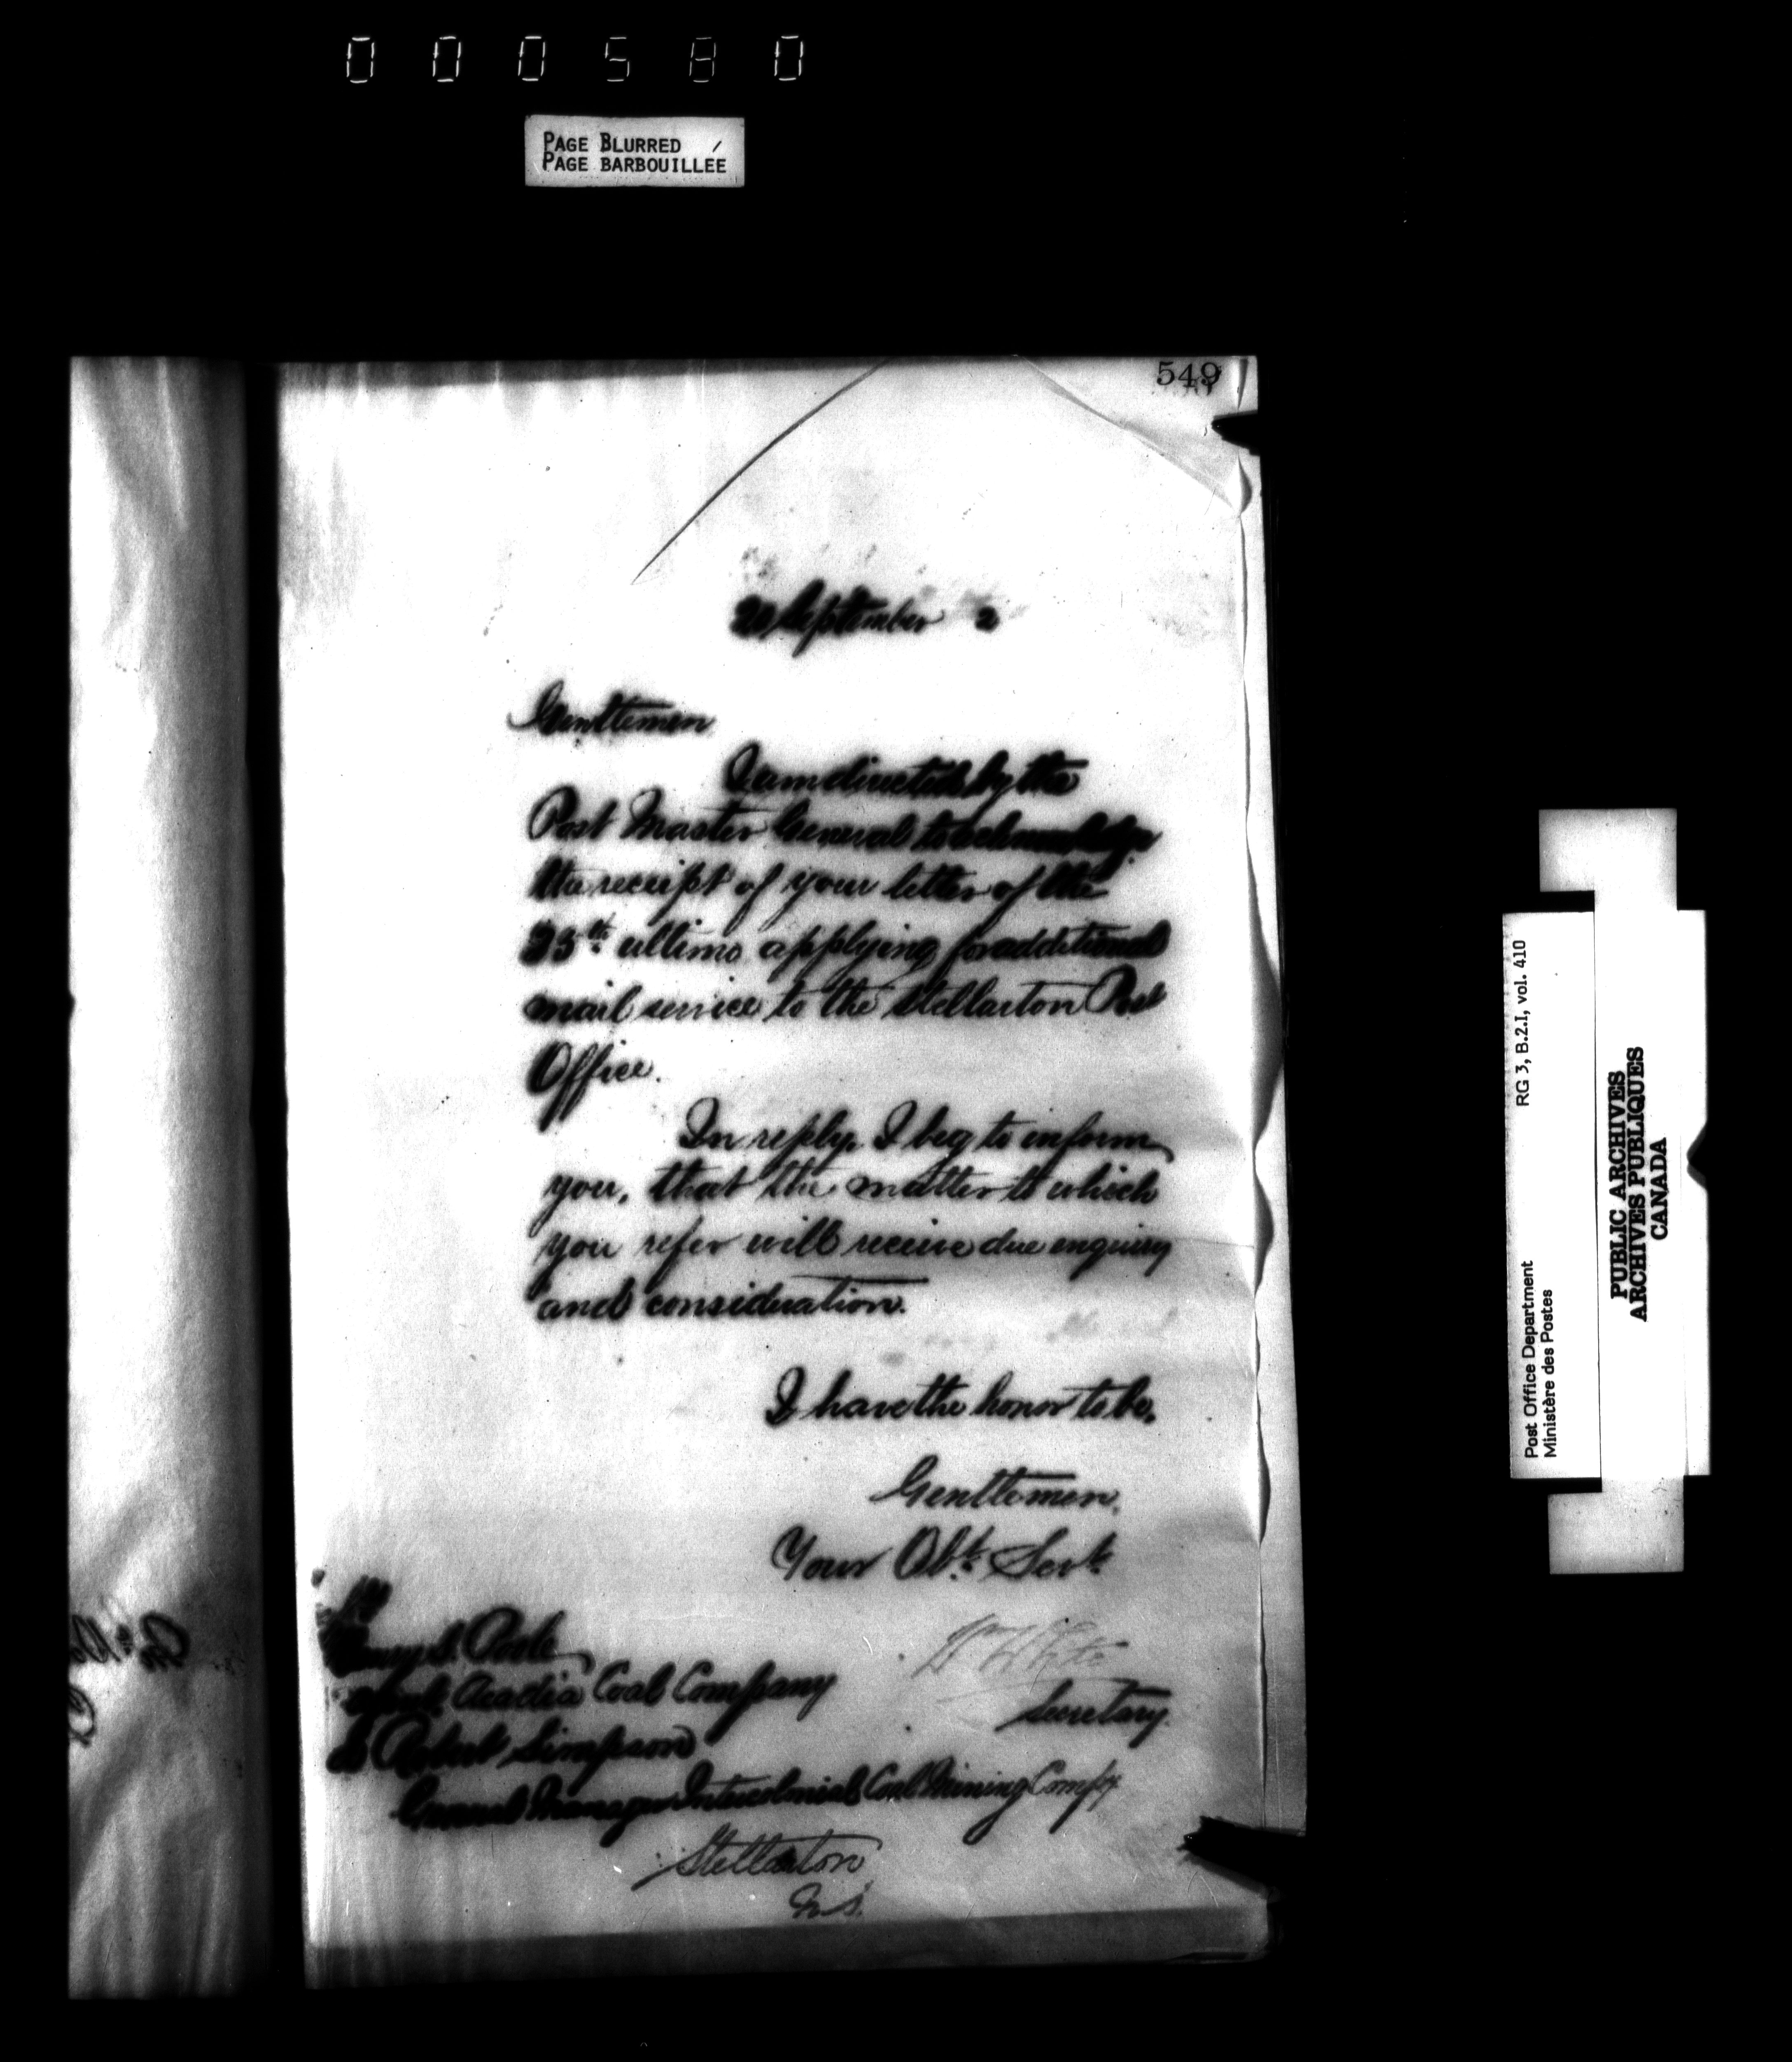 000580
PAGE BLURRED
PAGE BARBOUILLÉE
549
September 2
Gentlemen
I am directed by the
Post Master General to acknowledge
the receipt of your letter of the
25th ultimo applying for additional
mail service to the Stellarton Post
Office.
In reply, I beg to inform
you, that the matter to which
you refer will receive due enquiry
and consideration.
I have the honor to be,
Gentlemen,
Your Obt. Servt
Wm White
Secretary.
Henry S. Poole
Agent, Acadia Coal Company
& Robert Simpson
General Manager Intercolonial Coal Mining Compy
Stellarton
N.S.
Post Office Department RG 3, B.2.I, vol. 410
Ministère des Postes
PUBLIC ARCHIVES
ARCHIVES PUBLIQUES
CANADA